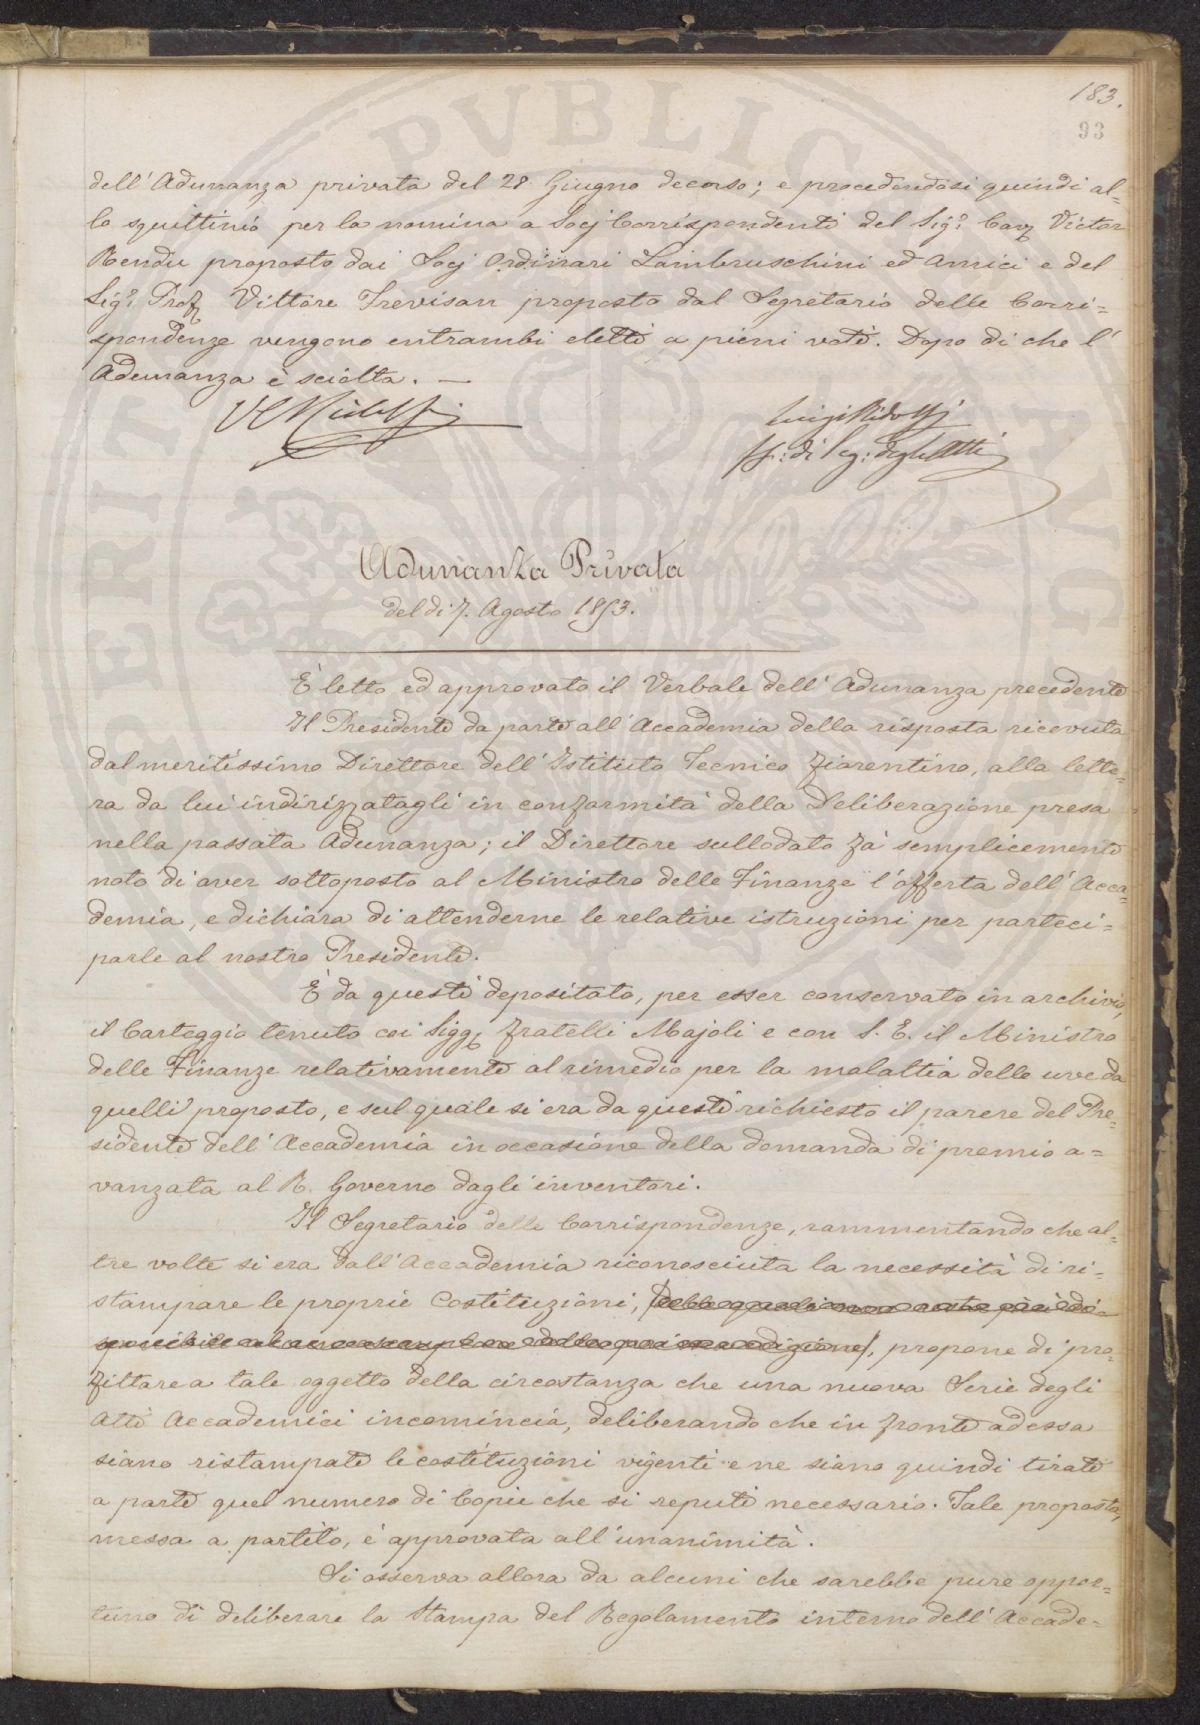 183.
93
dell' Adunanza privata del 28 Giugno decorso; e procedendosi quindi al-
lo squittinio per la nomina a Socj Corrispondenti del Sig.r Cav. Victor
Rendu proposto dai Socj Ordinari Lambruschini ed Amici e del
Sig.r Prof. Vittore Trevisan proposto dal Segretario delle Corri=
spondenze vengono entrambi eletti a pieni voti. Dopo di che l'
Adunanza è sciolta. —
Luigi Ridolfi
ff: di Seg: degli Atti
Adunanza Privata
del dì 7. Agosto 1853.
È letto ed approvato il Verbale dell' Adunanza precedente
Il Presidente da parte all' Accademia della risposta ricevuta
dal meritissimo Direttore dell' Istituto Tecnico Fiorentino, alla lette=
ra da lui indirizzatagli in conformità della Deliberazione presa
nella passata Adunanza; il Direttore sullodato fà semplicemente
noto di aver sottoposto al Ministro delle Finanze l'offerta dell' Acca=
demia, e dichiara di attenderne le relative istruzioni per parteci=
parle al nostro Presidente.
È da questi depositato, per esser conservato in archivio,
il Carteggio tenuto coi Sigg. Fratelli Majoli e con S. E. il Ministro
delle Finanze relativamente al rimedio per la malattia delle uve da
quelli proposto, e sul quale si era da questi richiesto il parere del Pre=
sidente dell' Accademia in occasione della domanda di premio a=
vanzata al R. Governo dagli inventori.
Il Segretario delle Corrispondenze, rammentando che al=
tre volte si era dall' Accademia riconosciuta la necessità di ri=
stampare le proprie Costituzioni, (delle quali non resta più di=
sponibile alcun esemplare della prima edizione), propone di pro=
fittare a tale oggetto della circostanza che una nuova Serie degli
Atti Accademici incomincia, deliberando che in fronte ad essa
siano ristampate le costituzioni vigenti e ne siano quindi tirate
a parte quel numero di Copie che si reputi necessario. Tale proposta,
messa a partito, è approvata all' unanimità.
Si osserva allora da alcuni che sarebbe pure oppor=
tuno di deliberare la Stampa del Regolamento interno dell' Accade=